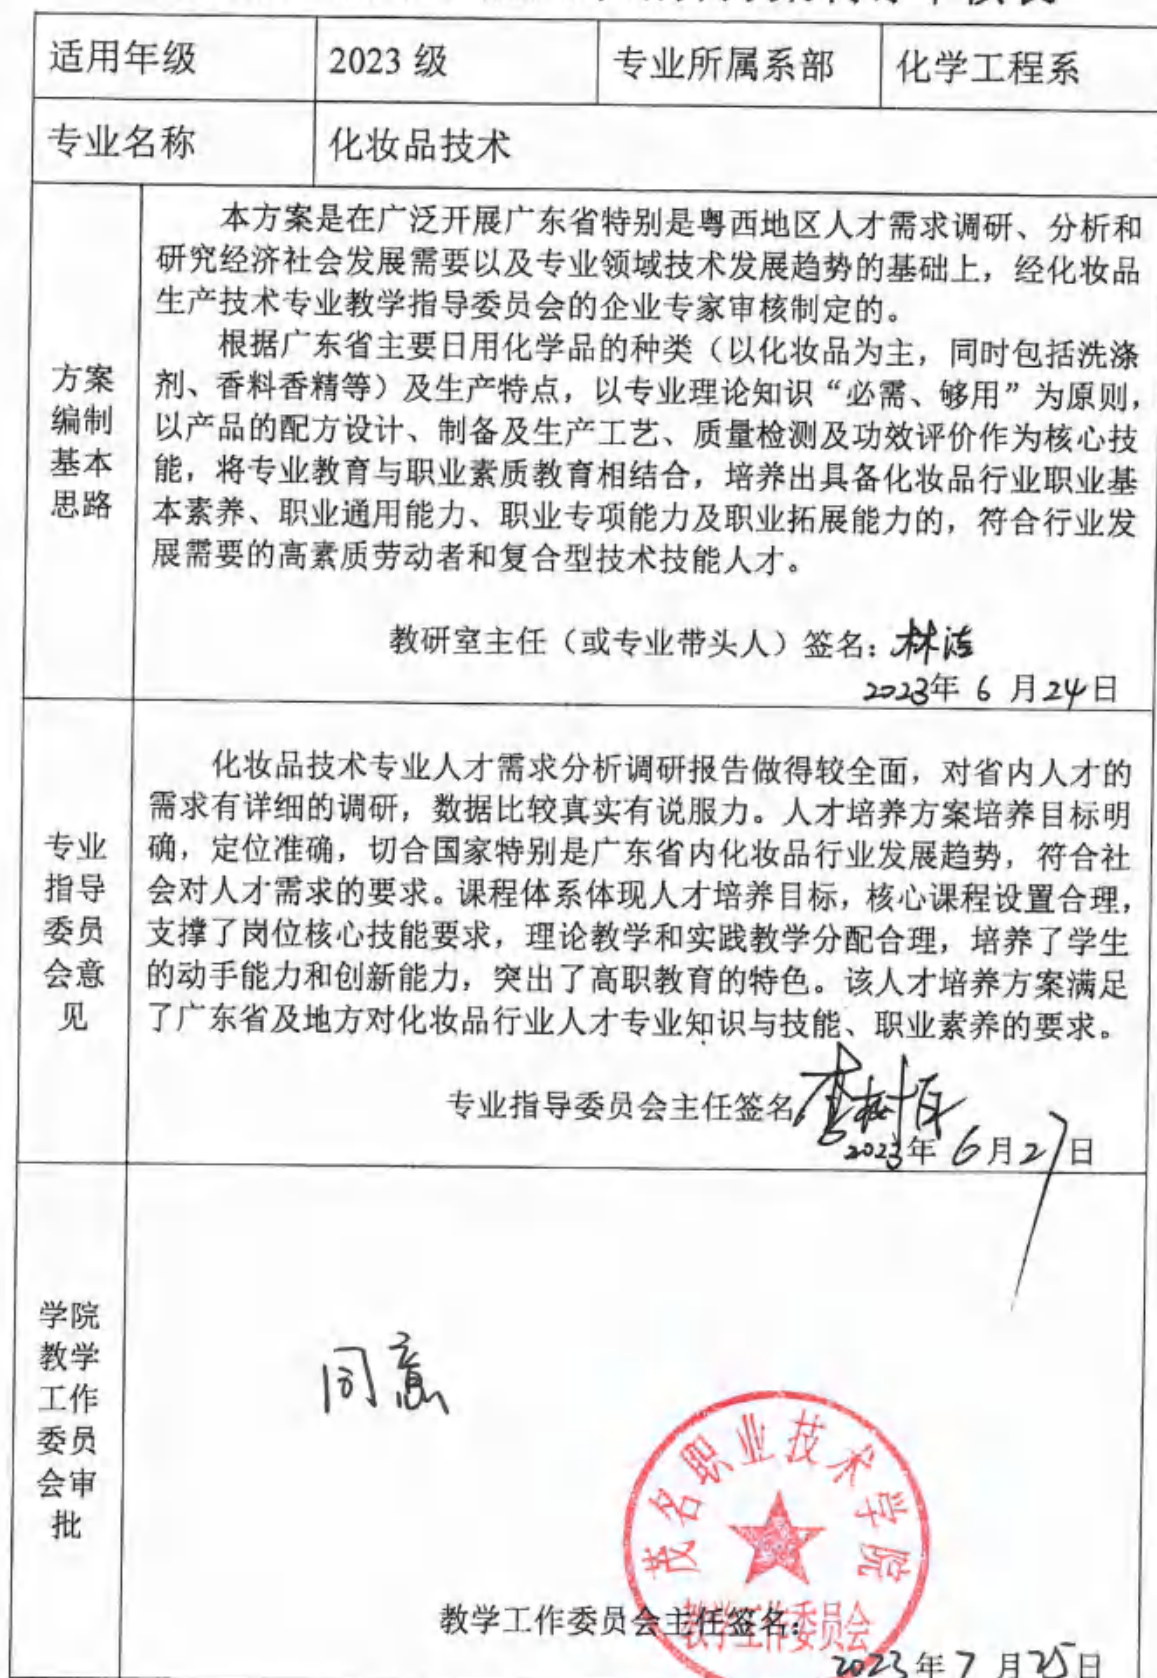 适用年级 2023 级 专业所属系部 化学工程系
专业名称 化妆品技术
方案
编制
基本
思路
本方案是在广泛开展广东省特别是粤西地区人才需求调研、分析和
研究经济社会发展需要以及专业领域技术发展趋势的基础上，经化妆品
生产技术专业教学指导委员会的企业专家审核制定的。
根据广东省主要日用化学品的种类（以化妆品为主，同时包括洗涤
剂、香料香精等）及生产特点，以专业理论知识“必需、够用”为原则，
以产品的配方设计、制备及生产工艺、质量检测及功效评价作为核心技
能，将专业教育与职业素质教育相结合，培养出具备化妆品行业职业基
本素养、职业通用能力、职业专项能力及职业拓展能力的，符合行业发
展需要的高素质劳动者和复合型技术技能人才。
教研室主任（或专业带头人）签名：林洁
2023年 6 月24日
专业
指导
委员
会意
见
化妆品技术专业人才需求分析调研报告做得较全面，对省内人才的
需求有详细的调研，数据比较真实有说服力。人才培养方案培养目标明
确，定位准确，切合国家特别是广东省内化妆品行业发展趋势，符合社
会对人才需求的要求。课程体系体现人才培养目标，核心课程设置合理，
支撑了岗位核心技能要求，理论教学和实践教学分配合理，培养了学生
的动手能力和创新能力，突出了高职教育的特色。该人才培养方案满足
了广东省及地方对化妆品行业人才专业知识与技能、职业素养的要求。
专业指导委员会主任签名
2023年 6月27日
学院
教学
工作
委员
会审
批
同意
茂名职业技术学院
教学工作委员会
教学工作委员会主任签名：
2023年 7 月25日